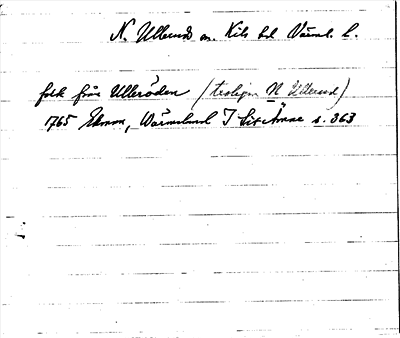 N. Ullerud sn. Kils hd Värml. l.
folk från Ulleröden (troligen N Ullerud)
1765 Edmm, Wärmeland I Lit Ämne s. 363